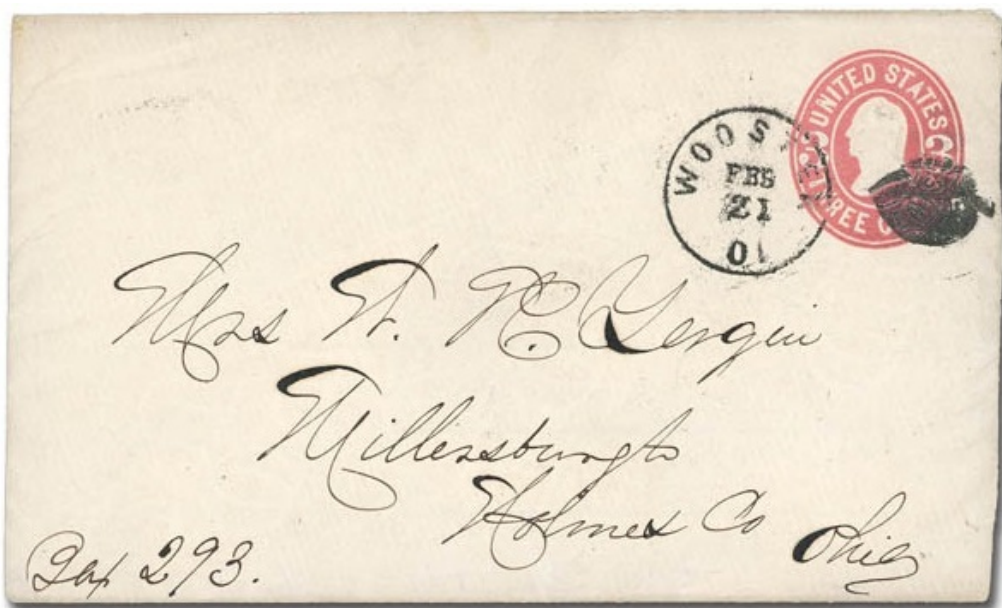 UNITED STATES
3 3
THREE
WOOSTE
FEB
21
Mrs W. R. Yergin
Millersburgh
Holmes Co Ohio
Box 293.